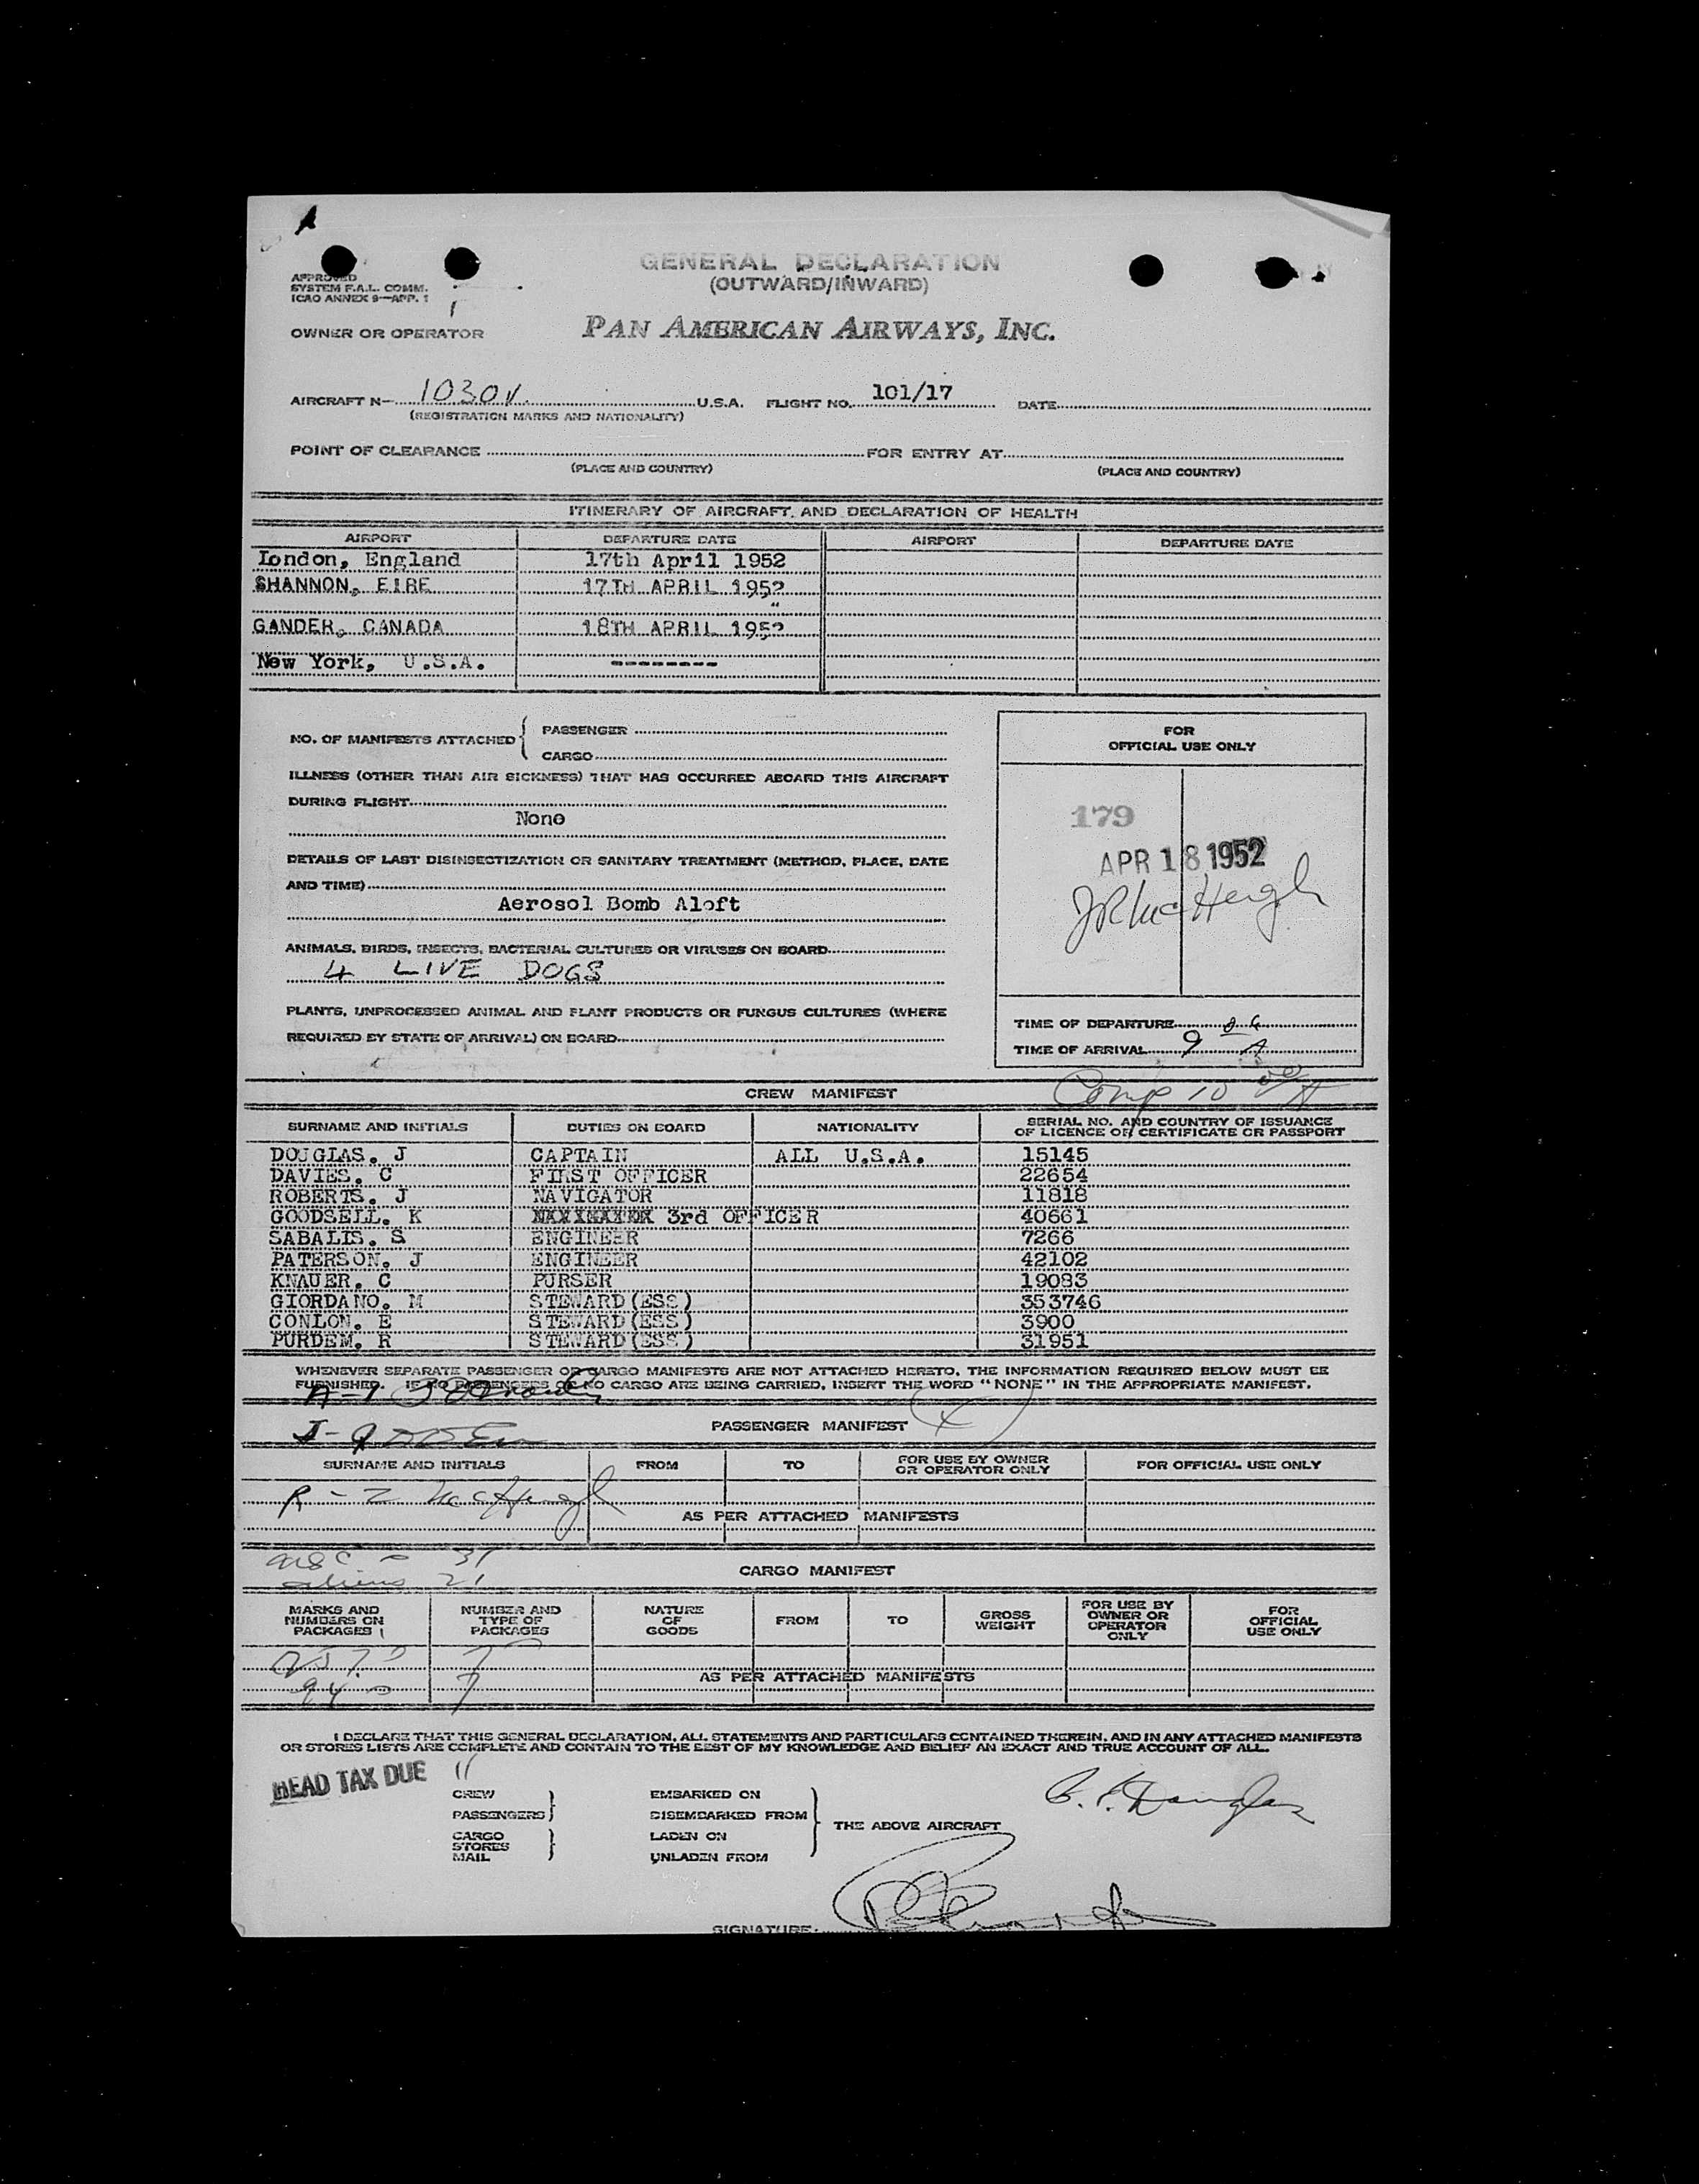 GENERAL DECLARATION
(OUTWARD/INWARD)
APPROVED
SYSTEM F.A.L. COMM.
ICAO ANNEX 9—APP. 1
OWNER OR OPERATOR PAN AMERICAN AIRWAYS, INC.
AIRCRAFT N— 1030V U.S.A. FLIGHT NO. 101/17 DATE
(REGISTRATION MARKS AND NATIONALITY)
POINT OF CLEARANCE FOR ENTRY AT
(PLACE AND COUNTRY) (PLACE AND COUNTRY)
ITINERARY OF AIRCRAFT AND DECLARATION OF HEALTH
AIRPORT DEPARTURE DATE AIRPORT DEPARTURE DATE
London, England 17th April 1952
SHANNON, EIRE 17TH APRIL 1952
"
GANDER, CANADA 18TH APRIL 1952
New York, U.S.A. --------
NO. OF MANIFESTS ATTACHED { PASSENGER
CARGO
ILLNESS (OTHER THAN AIR SICKNESS) THAT HAS OCCURRED ABOARD THIS AIRCRAFT
DURING FLIGHT
None
DETAILS OF LAST DISINSECTIZATION OR SANITARY TREATMENT (METHOD, PLACE, DATE
AND TIME)
Aerosol Bomb Aloft
ANIMALS, BIRDS, INSECTS, BACTERIAL CULTURES OR VIRUSES ON BOARD
4 LIVE DOGS
PLANTS, UNPROCESSED ANIMAL AND PLANT PRODUCTS OR FUNGUS CULTURES (WHERE
REQUIRED BY STATE OF ARRIVAL) ON BOARD
FOR
OFFICIAL USE ONLY
179
APR 18 1952
TIME OF DEPARTURE
TIME OF ARRIVAL 9 A
Comp 10 00/A
CREW MANIFEST
SURNAME AND INITIALS DUTIES ON BOARD NATIONALITY SERIAL NO. AND COUNTRY OF ISSUANCE
OF LICENCE OR CERTIFICATE OR PASSPORT
DOUGLAS. J CAPTAIN ALL U.S.A. 15145
DAVIES. C FIRST OFFICER 22654
ROBERTS. J NAVIGATOR 11818
GOODSELL. K 3rd OFFICER 40661
SABALIS. S ENGINEER 7266
PATERSON. J ENGINEER 42102
KNAUER. C PURSER 19083
GIORDANO. M STEWARD(ESS) 353746
CONLON. E STEWARD(ESS) 3900
PURDEM. R STEWARD(ESS) 31951
WHENEVER SEPARATE PASSENGER OR CARGO MANIFESTS ARE NOT ATTACHED HERETO, THE INFORMATION REQUIRED BELOW MUST BE
FURNISHED. IF NO PASSENGERS OR NO CARGO ARE BEING CARRIED, INSERT THE WORD "NONE" IN THE APPROPRIATE MANIFEST.
PASSENGER MANIFEST
SURNAME AND INITIALS FROM TO FOR USE BY OWNER
OR OPERATOR ONLY FOR OFFICIAL USE ONLY
R - 2 McHugh
AS PER ATTACHED MANIFESTS
USC - 31
aliens 21
CARGO MANIFEST
MARKS AND
NUMBERS ON
PACKAGES NUMBER AND
TYPE OF
PACKAGES NATURE
OF
GOODS FROM TO GROSS
WEIGHT FOR USE BY
OWNER OR
OPERATOR
ONLY FOR
OFFICIAL
USE ONLY
AS PER ATTACHED MANIFESTS
I DECLARE THAT THIS GENERAL DECLARATION, ALL STATEMENTS AND PARTICULARS CONTAINED THEREIN, AND IN ANY ATTACHED MANIFESTS
OR STORES LISTS ARE COMPLETE AND CONTAIN TO THE BEST OF MY KNOWLEDGE AND BELIEF AN EXACT AND TRUE ACCOUNT OF ALL.
HEAD TAX DUE 11
CREW EMBARKED ON
PASSENGERS DISEMBARKED FROM
THE ABOVE AIRCRAFT
CARGO LADEN ON
STORES
MAIL UNLADEN FROM
SIGNATURE